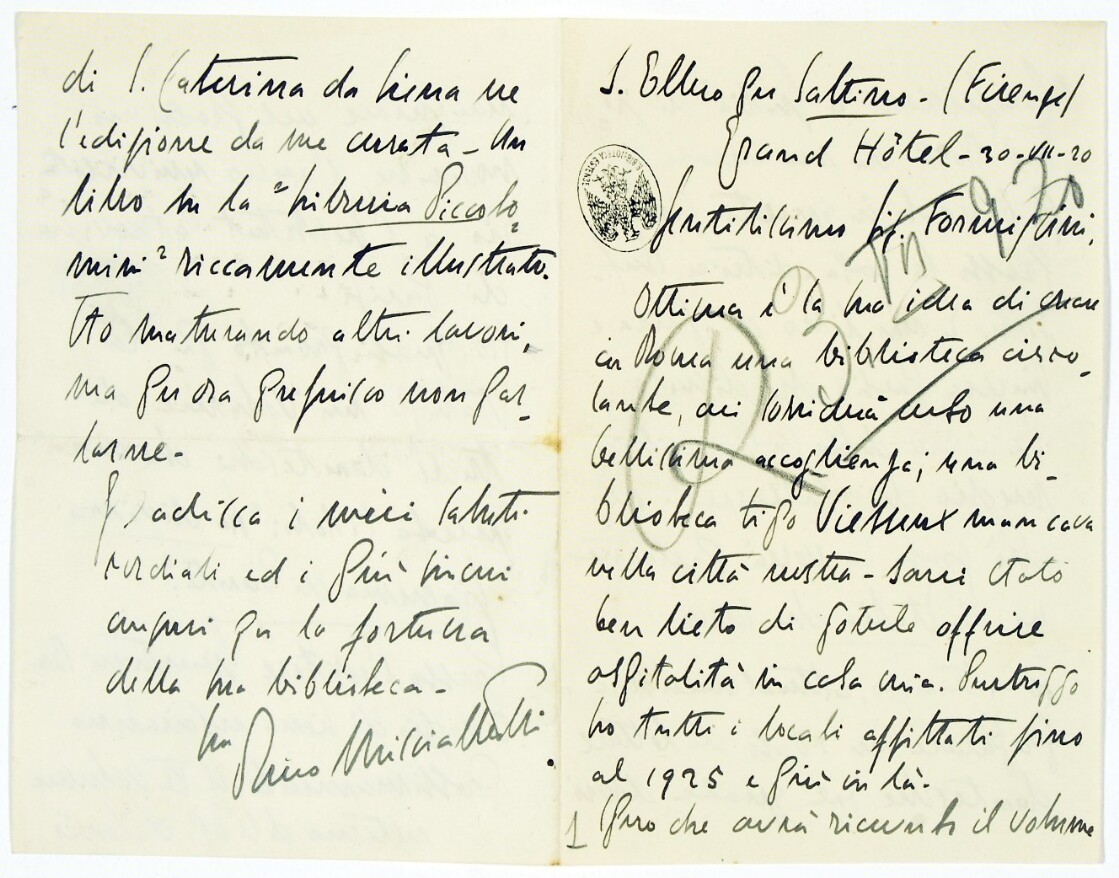 S. Ellero per Saltino - (Firenze)
Grand Hôtel - 30-VII-20
BIBLIOTECA ESTENSE
Gentilissimo Sig. Formiggini,
Ottima è la sua idea di creare
in Roma una biblioteca circo-
lante, cui sorriderà certo una
bellissima accoglienza; una bi-
blioteca tipo Viesseux mancava
nella città nostra - Sarei stato
ben lieto di poterle offrire
ospitalità in casa mia. Purtroppo
ho tutti i locali affittati fino
al 1925 e più in là.
1 Spero che avrà ricevuto il volume
R
di S. Caterina da Siena ne
l'edizione da me curata - Un
libro su la "Libreria Piccolo
mini" riccamente illustrato.
Sto maturando altri lavori,
ma per ora preferisco non par-
larne -
Gradisca i miei saluti
cordiali ed i più sinceri
auguri per la fortuna
della sua biblioteca -
Suo Piero Misciattelli.